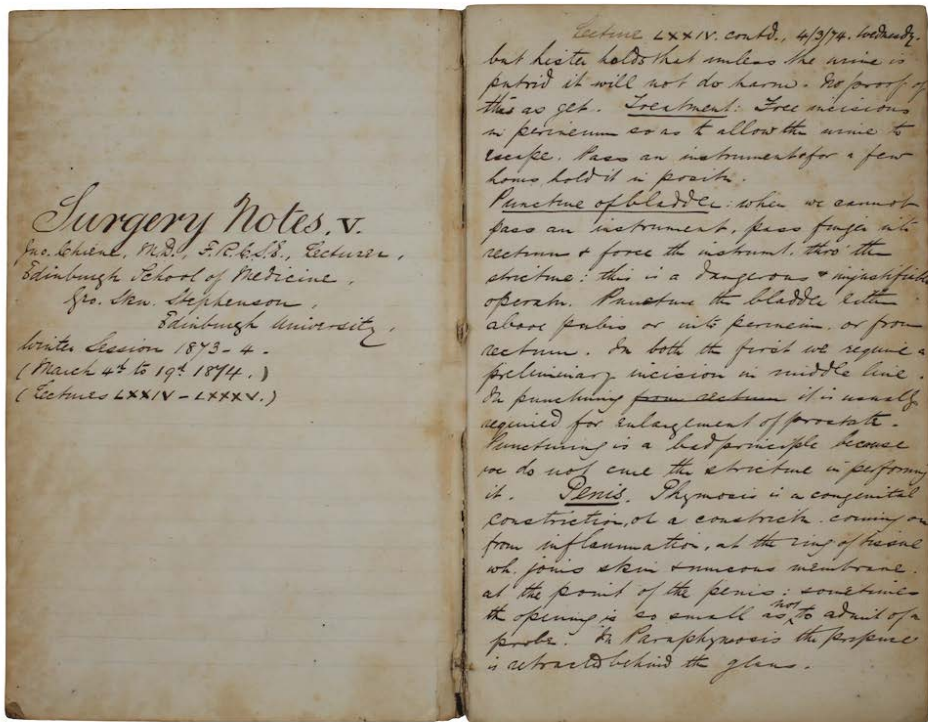 Surgery Notes. V.
Jno. Chiene, M.D., F.R.C.S.E., Lecturer,
Edinburgh School of Medicine,
Geo. Skn. Stephenson,
Edinburgh University,
Winter Session 1873-4.
(March 4th to 19th 1874.)
(Lectures LXXIV-LXXXV.)
Lecture LXXIV. contd., 4/3/74. Wednesdy.
but Lister holds that unless the urine is
putrid it will not do harm. No proof of
this as yet. Treatment: Free incisions
in perineum so as to allow the urine to
escape. Pass an instrument & for a few
hours hold it in positn.
Puncture of bladder: when we cannot
pass an instrument, pass finger into
rectum & force the instrumt. thro' the
stricture: this is a dangerous & unjustifiable
operatn. Puncture the bladder either
above pubis or into perineum, or from
rectum. In both the first we require a
preliminary incision in middle line.
In puncturing from rectum it is usually
required for enlargement of prostate.
Puncturing is a bad principle because
we do not cure the stricture in performing
it. Penis. Phymosis is a congenital
constriction, or a constrictn. coming on
from inflammation, at the ring of tissue
wh. joins skin & mucous membrane.
at the point of the penis: sometimes
th opening is so small as not to admit of a
probe. In Paraphymosis the prepuce
is retracted behind the glans.